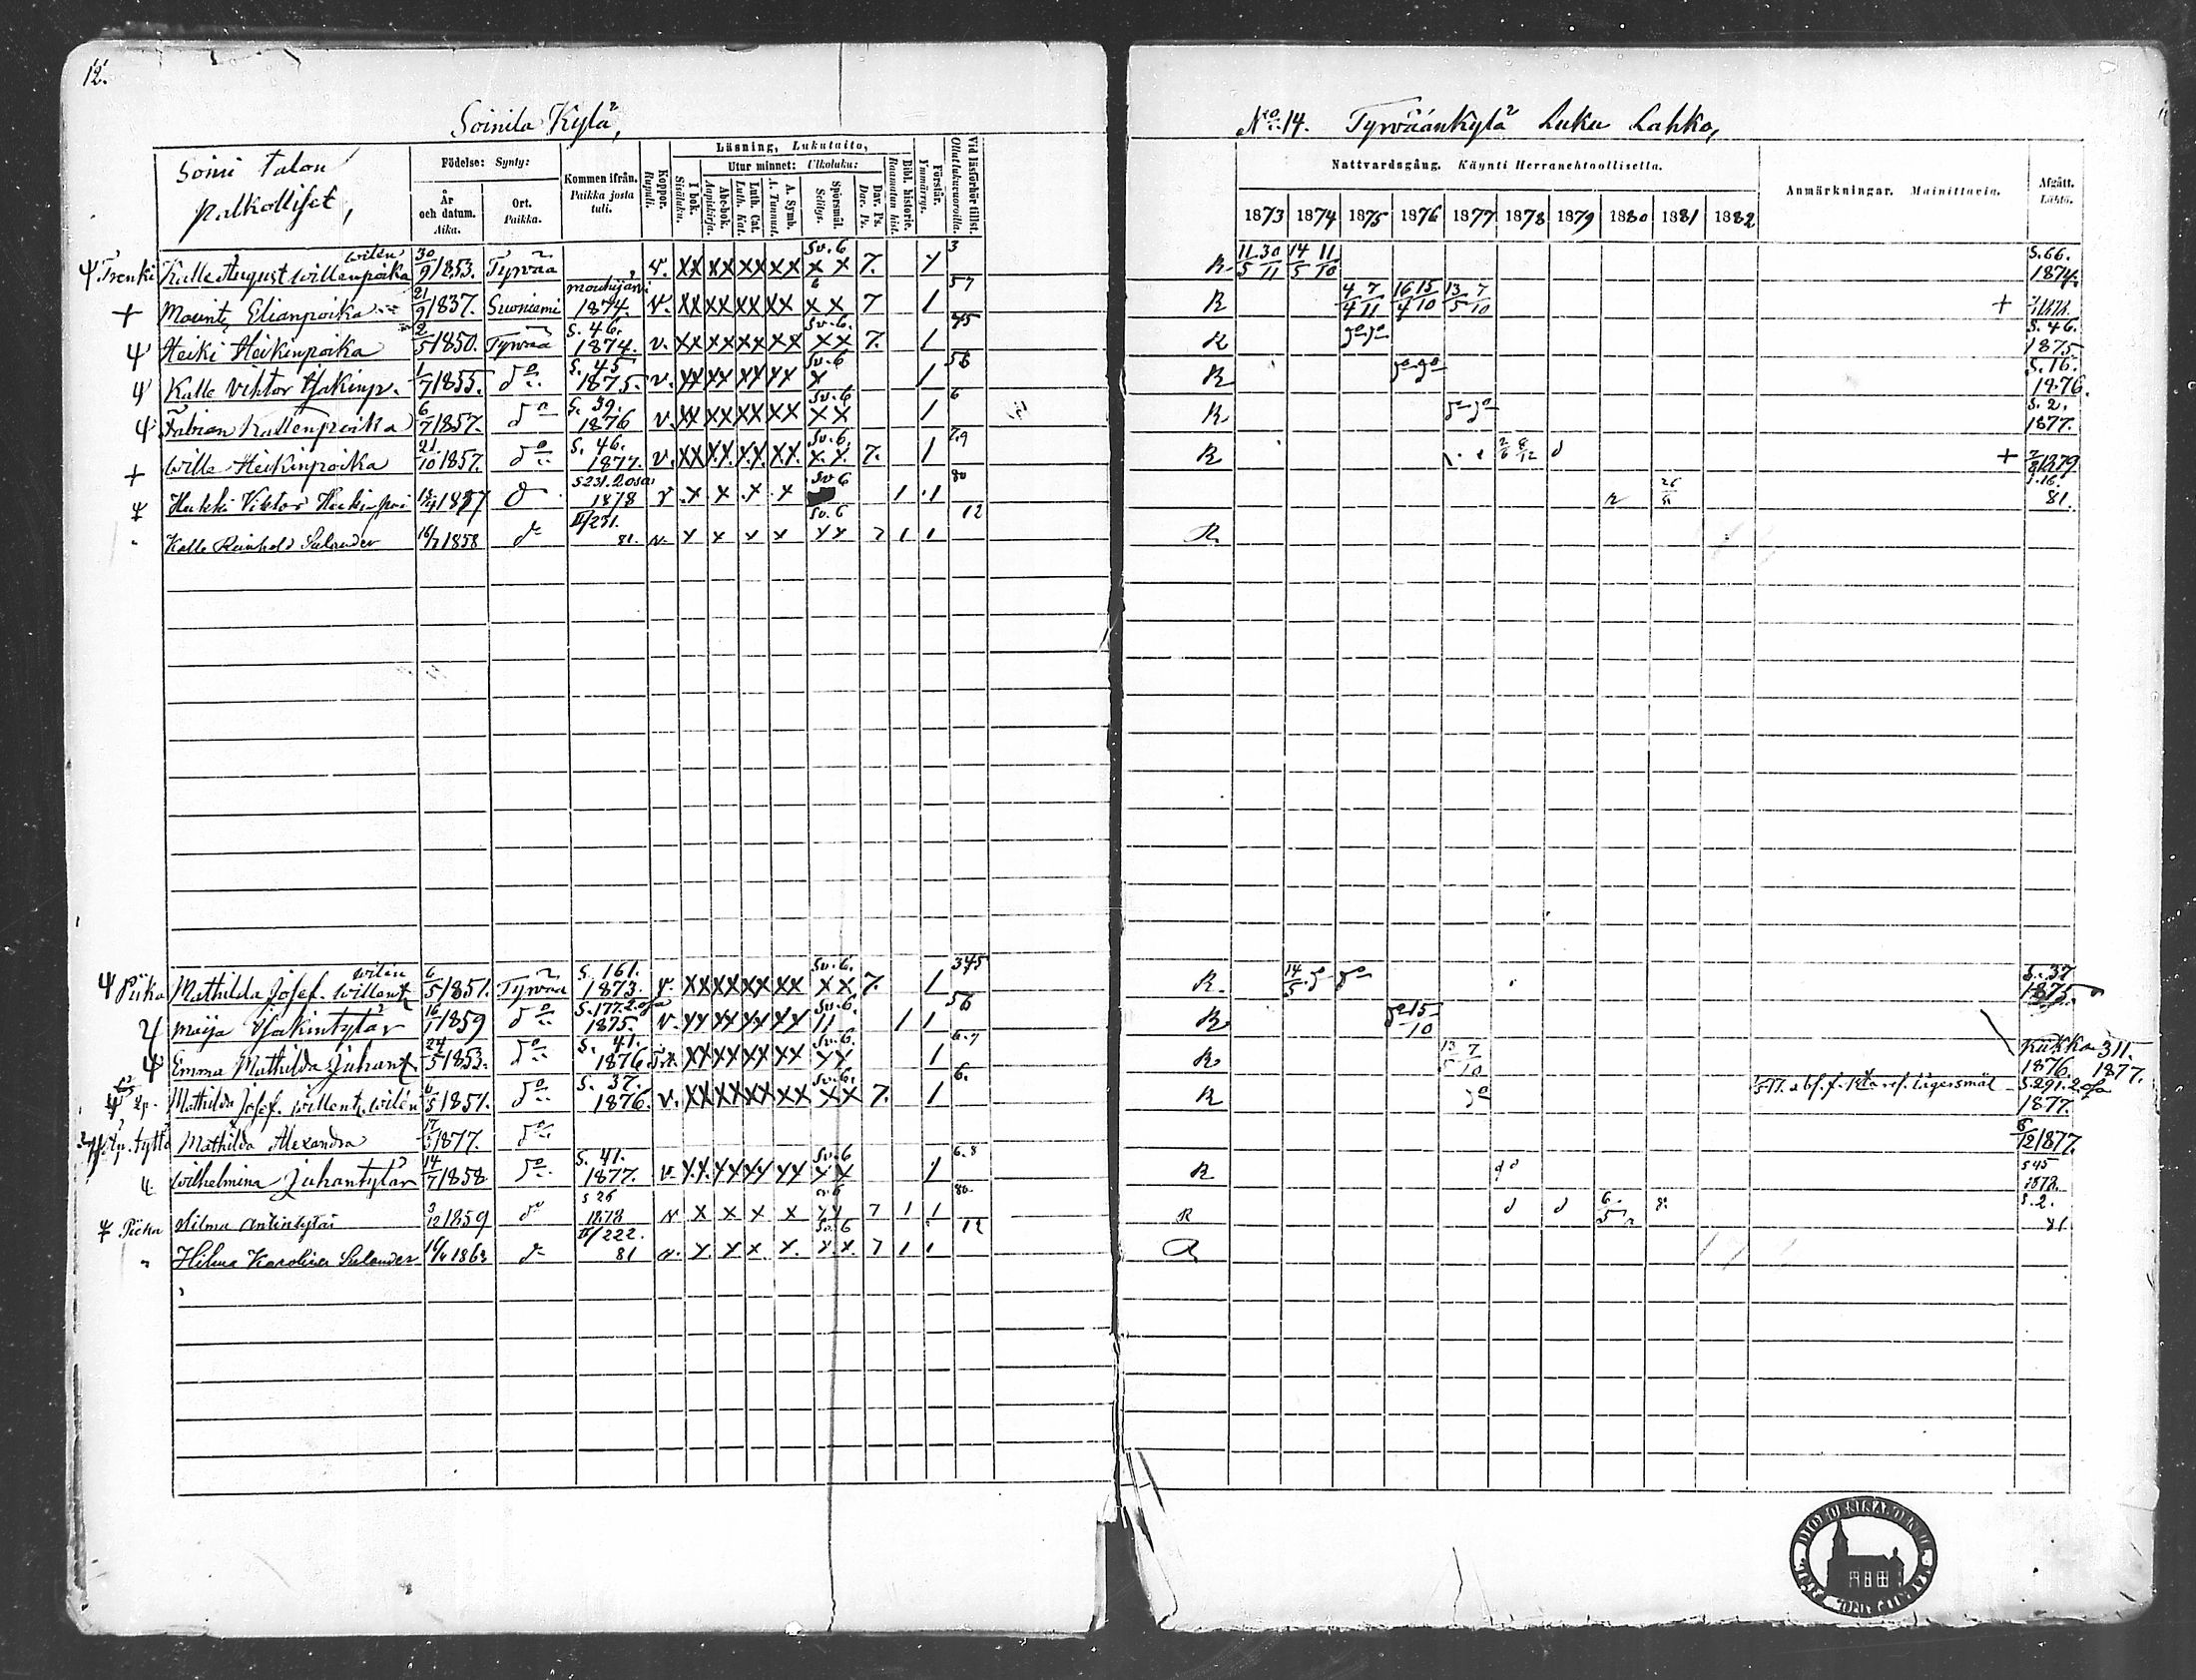 12.
Soinila Kylä,
No 14. Tyrväänkylä Luku Lahko,
Soini talon
palkolliset,
Födelse: Synty:
År och datum. Aika.
Ort. Paikka.
Kommen ifrån. Paikka josta tuli.
Koppor. Rupuli.
Läsning, Lukutaito,
I bok. Sisäluku.
Utur minnet: Ulkoluku:
Abc-bok. Aapiskirja.
Luth. Cat. Luth. Kat.
A. Symb. A. Tunnust.
Spörsmål. Selitys.
Dav. Ps. Dav. Ps.
Bibl. historie. Raamatun hist.
Förstår. Ymmärrys.
Vid läsförhör tillst. Ollut lukuvuoroilla.
Nattvardsgång. Käynti Herranehtoollisella.
1873 1874 1875 1876 1877 1878 1879 1880 1881 1882
Anmärkningar. Mainittavia.
Afgått. Lähtö.
Trenki Kalle August Willenpoika Wilén 30/9 1853. Tyrvää v. XX XX XX XX Sv. 6 X X 7. 3 R. 11/5 30/11 14/5 11/10 S. 66. 1874.
+ Mauritz Elianpoika 21/9 1837. Suoniemi Mouhijärvi 1874. v. XX XX XX XX 6 X X 7 1 57 R 4/4 7/11 16/4 15/10 13/5 7/10 +
Heiki Heikinpoika 2/5 1850. Tyrvää S. 46. 1874. v. XX XX XX XX Sv. 6. X X 7. 1 R do do S. 46. 1875.
Kalle Viktor Isakinp. 1/7 1855. do S. 45 1875. v. XX XX XX XX Sv. 6 X 1 56 R do do S. 16. 1876.
Fabian Kallenpoika 6/7 1857. do S. 39. 1876 v. XX XX XX XX Sv. 6 X X 1 6 R. do do S. 2. 1877.
+ Wille Heikinpoika 21/10 1857. do S. 46. 1877. v. XX XX XX XX Sv. 6. X X 7. 1 7.9 R + 1879
Heikki Viktor Heikinpoi do S 231. 2 osa 1878 v X X X X Sv 6 1 1 80 S. 16. 81.
Kalle Reinhold Selander 16/7 1858 do II/231. 81. v. X X X X Sv. 6 X X 7 1 1 12 R.
Piika Mathilda Josef. Willent. Wilén 6/5 1851. Tyrvää S. 161. 1873. v. XX XX XX XX Sv. 6. X X 7. 1 345 R. 14/5 do do S. 37 1875.
Maija Isakintytär 16/1 1859 do S. 177. 2. osa 1875. v. XX XX XX XX Sv. 6. 11 1 1 56 R do 15/10
Emma Mathilda Juhant. 24/5 1853. do S. 41. 1876 XX XX XX XX Sv. 6. X X 1 6.7 R. 13/5 7/10 Kukko 311. 1876. 1877.
Mathilda Josef. Willent. Wilén 6/5 1851. do S. 37. 1876. v. XX XX XX XX Sv. 6. X X 7. 1 6. R do lägersmål S. 291. 2 osa 1877.
tyttö Mathilda Alexandra 17/5 1877. do 8/12 1877.
Wilhelmina Juhantytär 14/7 1858. do S. 41. 1877. v. XX XX XX XX Sv. 6 X X 1 6.8 R S 45 1878.
Piika Hilma Antintytär 3/12 1859 do S 26 1878 v X X X X 7 1 1 80. R S. 2. 81
Hilma Karolina Selander 1863 do II/222. 81 v. X X X X Sv. 6 X X 7 1 1 12 R